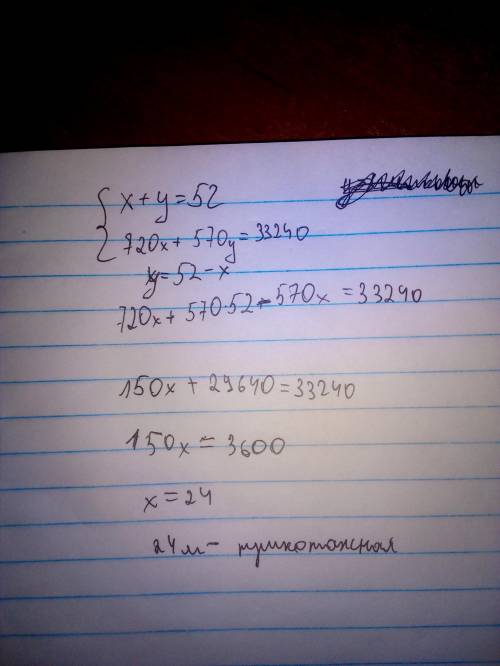 { x + y = 52
720x + 570y = 33240
y = 52 - x
720x + 570·52 - 570x = 33240
150x + 29640 = 33240
150x = 3600
x = 24
24м - трикотажная